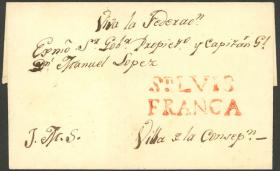 Viva la Federaon
Exmô Sr Gobr Propieto y Capitán Gl
Dn Manuel Lopez
Sn LVIS
FRANCA
J. M. S.
Villa de la Consepn